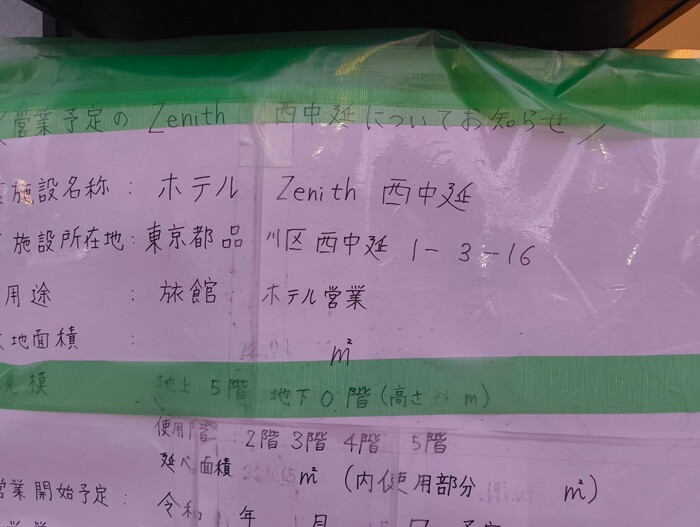 営業予定の Zenith 西中延についてお知らせ
施設名称 : ホテル Zenith 西中延
施設所在地 : 東京都品川区西中延 1-3-16
用途 : 旅館 ホテル営業
地面積 : m²
模 地上 5階 地下 0 階 (高さ m)
使用階 : 2階 3階 4階 5階
延べ面積 m² (内使用部分 m²)
営業開始予定 : 令和 年 月 日 予定